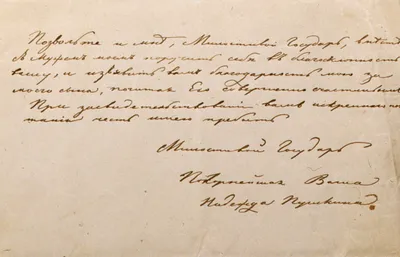 Позвольте и мнѣ, Милостивой Государь, 
съ Мужемъ моимъ поручить себя въ благосклонность
вашу, и изъявить вамъ благодарность мою за
моего сына, почитая Его совершенно счастливымъ
При засвидетельствовании вамъ искренняго
честь имею пребыть
Милостивой Государь
Покорнейшая Ваша
Надежда Пушкина.